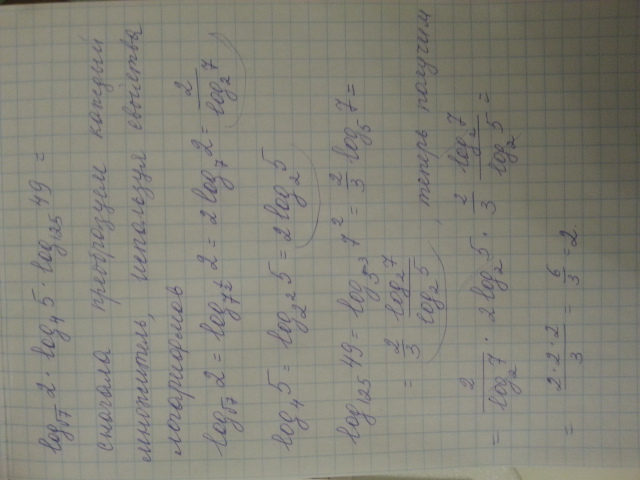 log_√7 2 · log_4 5 · log_125 49 =
сначала преобразуем каждый
множитель, используя свойства
логарифмов
log_√7 2 = log_{7^{1/2}} 2 = 2 log_7 2 = 2 / log_2 7
log_4 5 = log_{2^2} 5 = 2 log_2 5
log_125 49 = log_{5^3} 7^2 = 2/3 log_5 7 =
= 2/3 log_2 7 / log_2 5, теперь получим
= 2 / log_2 7 · 2 log_2 5 · 2/3 log_2 7 / log_2 5 =
= 2·2·2 / 3 = 6/3 = 2